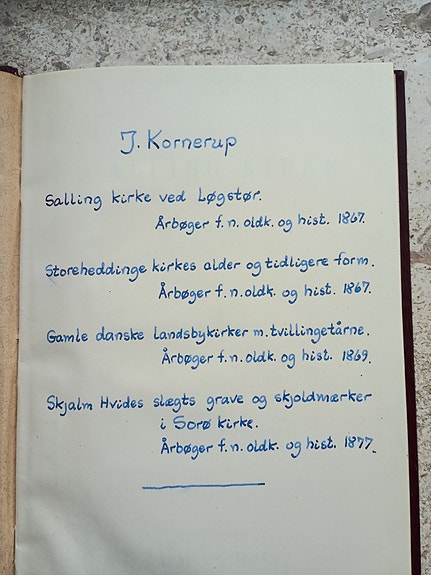 J. Kornerup
Salling kirke ved Løgstør.
Årbøger f. n. oldk. og hist. 1867.
Storeheddinge kirkes alder og tidligere form.
Årbøger f. n. oldk. og hist. 1867.
Gamle danske landsbykirker m. tvillingetårne.
Årbøger f. n. oldk. og hist. 1869.
Skjalm Hvides slægts grave og skjoldmærker
i Sorø kirke.
Årbøger f. n. oldk. og hist. 1877.